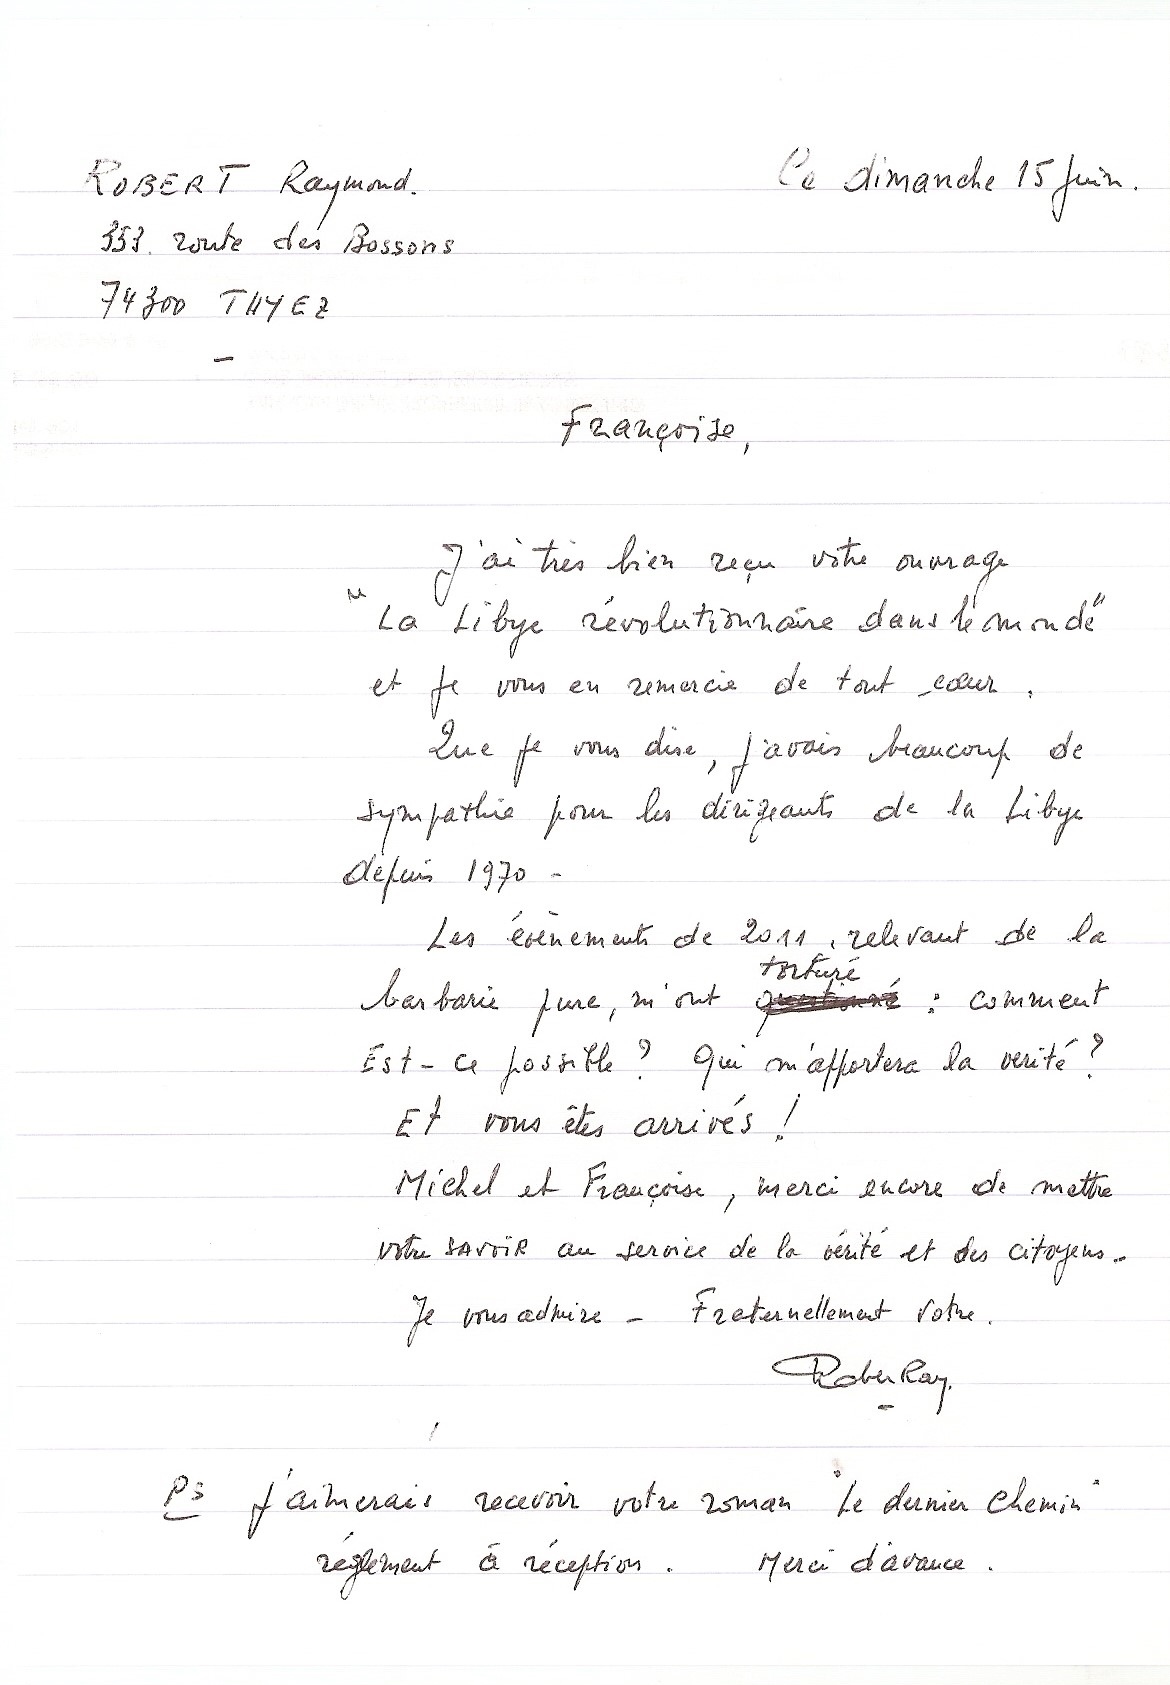 ROBERT Raymond.
Ce dimanche 15 Juin.
353. route des Bossons
74300 THYEZ
Françoise,
J'ai très bien reçu votre ouvrage
"La Libye révolutionnaire dans le monde"
et je vous en remercie de tout cœur.
Que je vous dise, j'avais beaucoup de
sympathie pour les dirigeants de la Libye
depuis 1970 -
Les évènements de 2011, relevant de la
torturé
barbarie pure, m'ont questionné : comment
Est-ce possible ? Qui m'apportera la vérité ?
Et vous êtes arrivés !
Michel et Françoise, merci encore de mettre
votre SAVOIR au service de la vérité et des citoyens -
Je vous admire - Fraternellement Votre.
RoberRay.
PS J'aimerais recevoir votre roman "Le dernier Chemin"
réglement à réception. Merci d'avance.